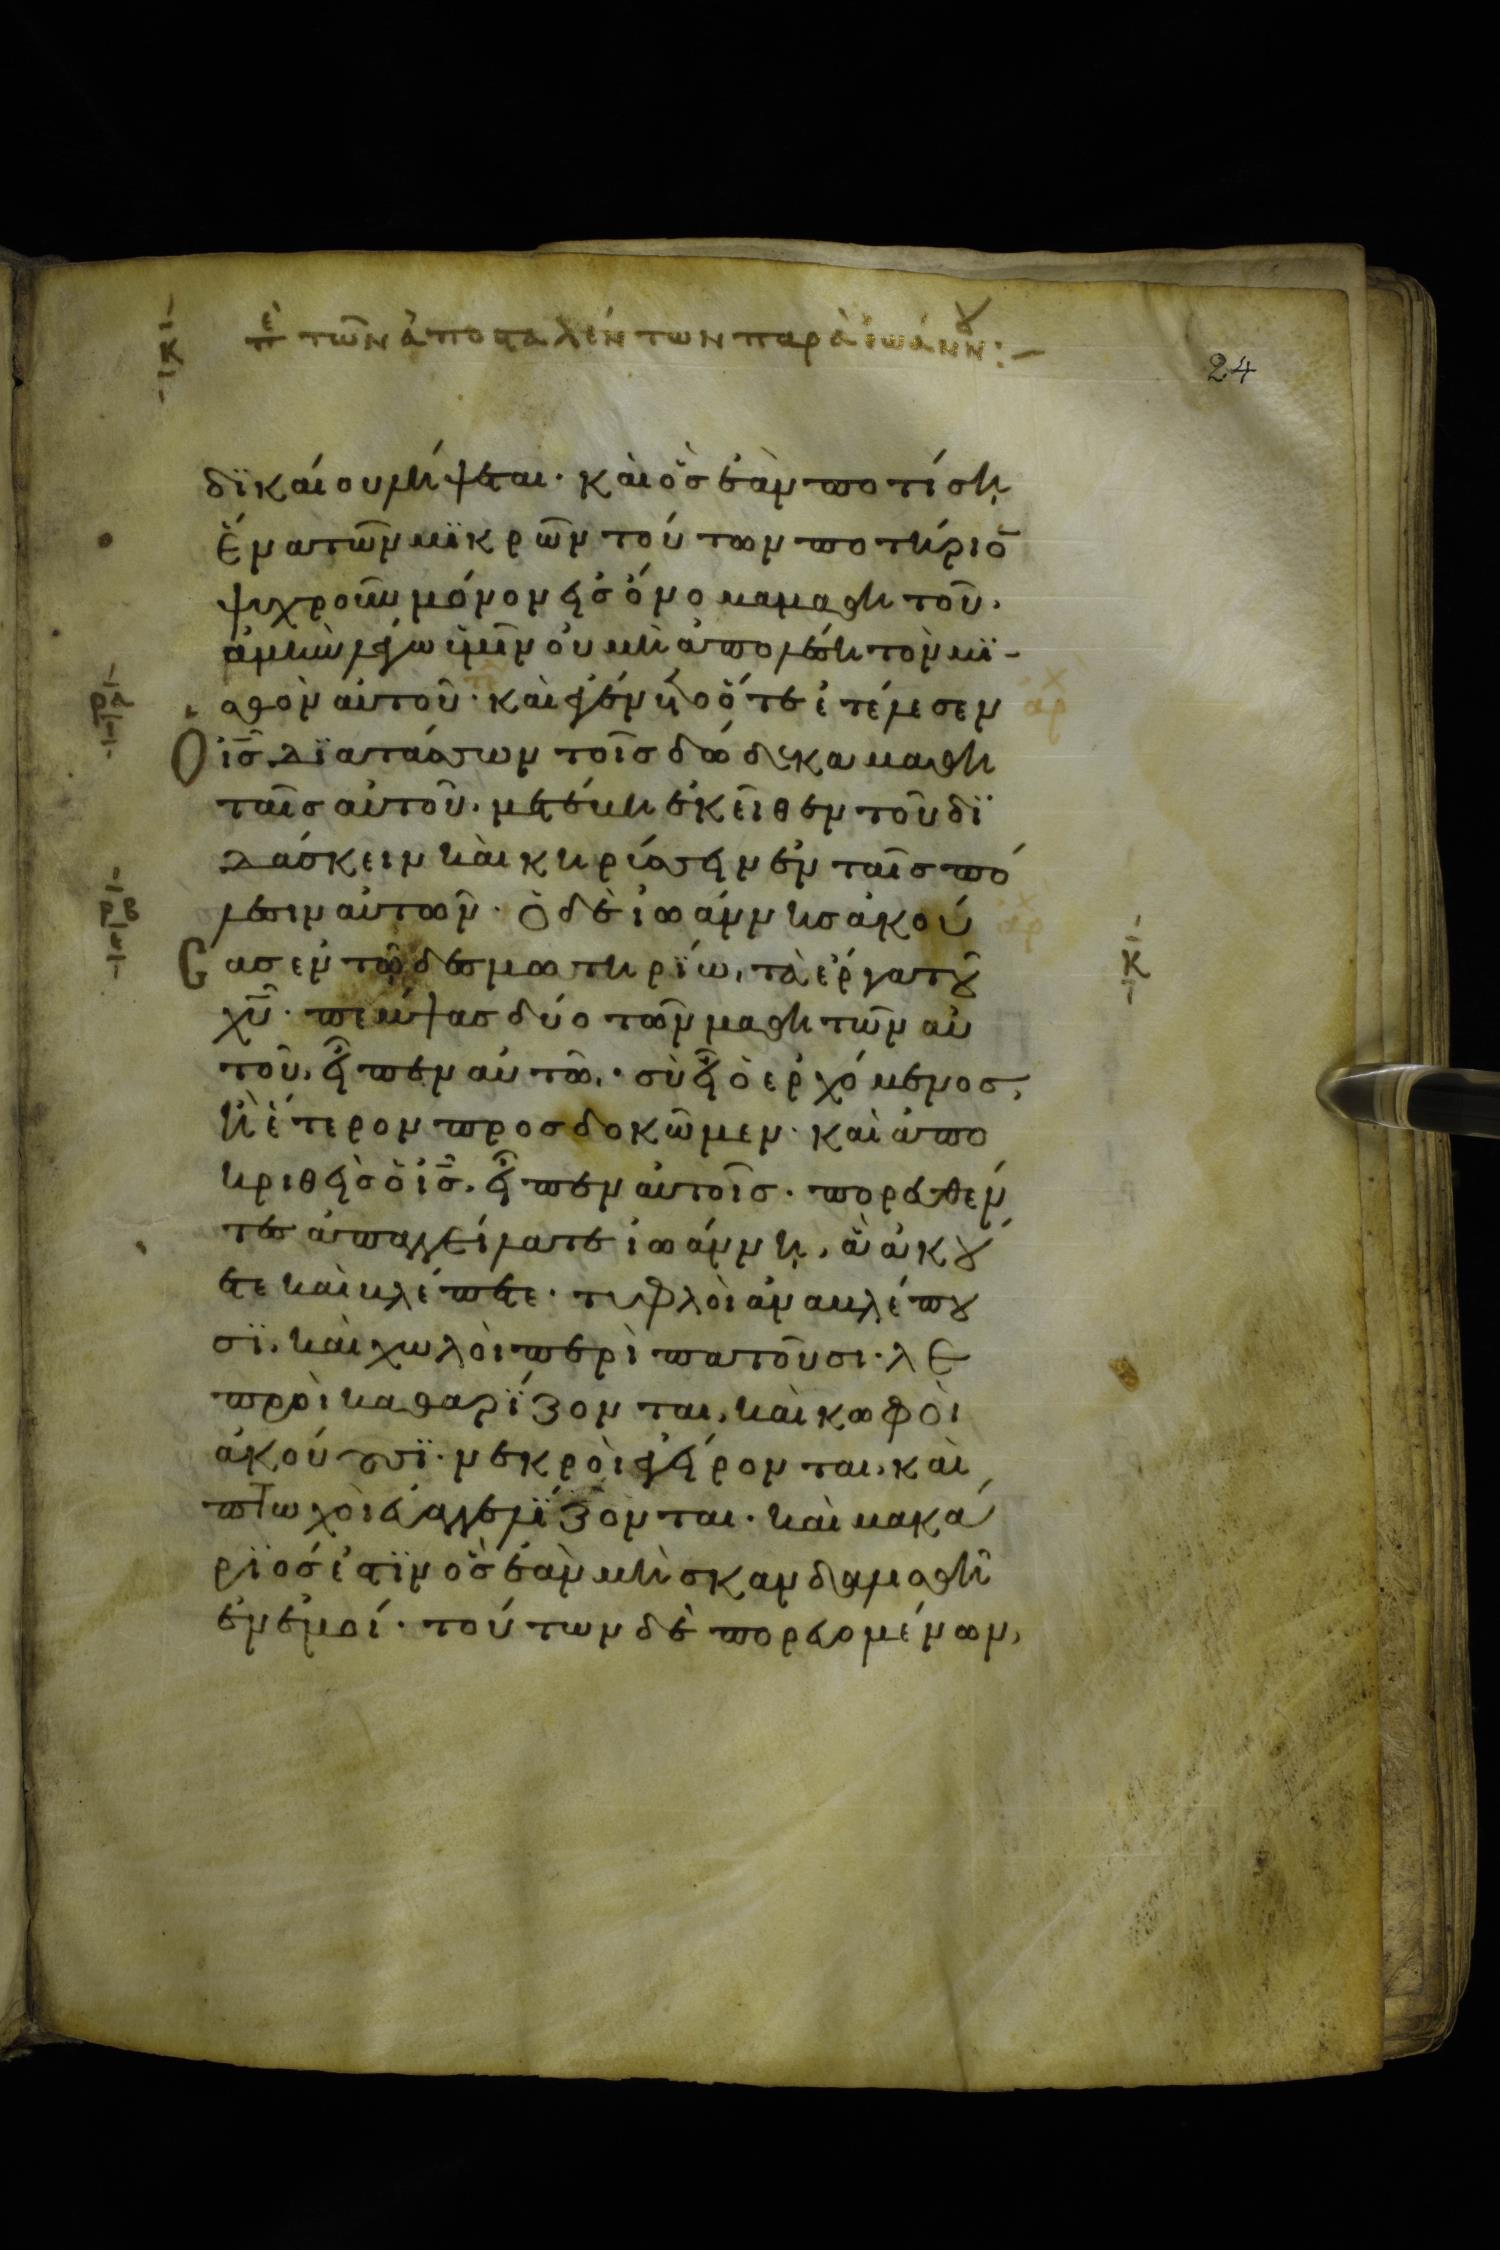 κ
πε τῶν ἀποσταλέντων παρὰ ἰωάννου :–
24
δϊκαίου λήψεται · καὶ ὃς ἐὰν ποτίση
ἕνα τῶν μϊκρῶν τούτων ποτήριον
ψυχροῦ μόνον εἰς ὄνομα μαθητοῦ,
ἀμὴν λέγω ὑμῖν οὐ μὴ ἀπολέση τὸν μϊ-
σθὸν αὐτοῦ · καὶ ἐγένετο ὅτε ἐτέλεσεν
ρα
ὁ ις διατάσσων τοῖς δώδεκα μαθη
ταῖς αὐτοῦ, μετέβη ἐκεῖθεν τοῦ δϊ
δάσκειν καὶ κηρύσσειν ἐν ταῖς πό
ρβ
λεσιν αὐτῶν · ὁ δὲ ἰωάννης ἀκού
σας ἐν τῶ δεσμωτηρίω, τὰ ἔργα τοῦ
κ
χυ · πέμψας δύο τῶν μαθητῶν αὐ
τοῦ, εἶπεν αὐτῶ, · σὺ εἶ ὁ ἐρχόμενος,
ἢ ἕτερον προσδοκῶμεν · καὶ ἀπο
κριθεὶς ὁ ις, εἶπεν αὐτοῖς · πορευθέν
τες ἀπαγγείλατε ἰωάννη, ἃ ἀκού
ετε καὶ βλέπετε · τυφλοὶ ἀναβλέπου
σϊ, καὶ χωλοὶ περιπατοῦσι · λε
προὶ καθαρίζονται, καὶ κωφοὶ
ἀκούουσϊ · νεκροὶ ἐγείρονται, καὶ
πτωχοὶ εὐαγγελίζονται · καὶ μακά
ρϊός ἐστϊν ὃς ἐὰν μὴ σκανδαλισθῆ
ἐν ἐμοί · τούτων δὲ πορευομένων,